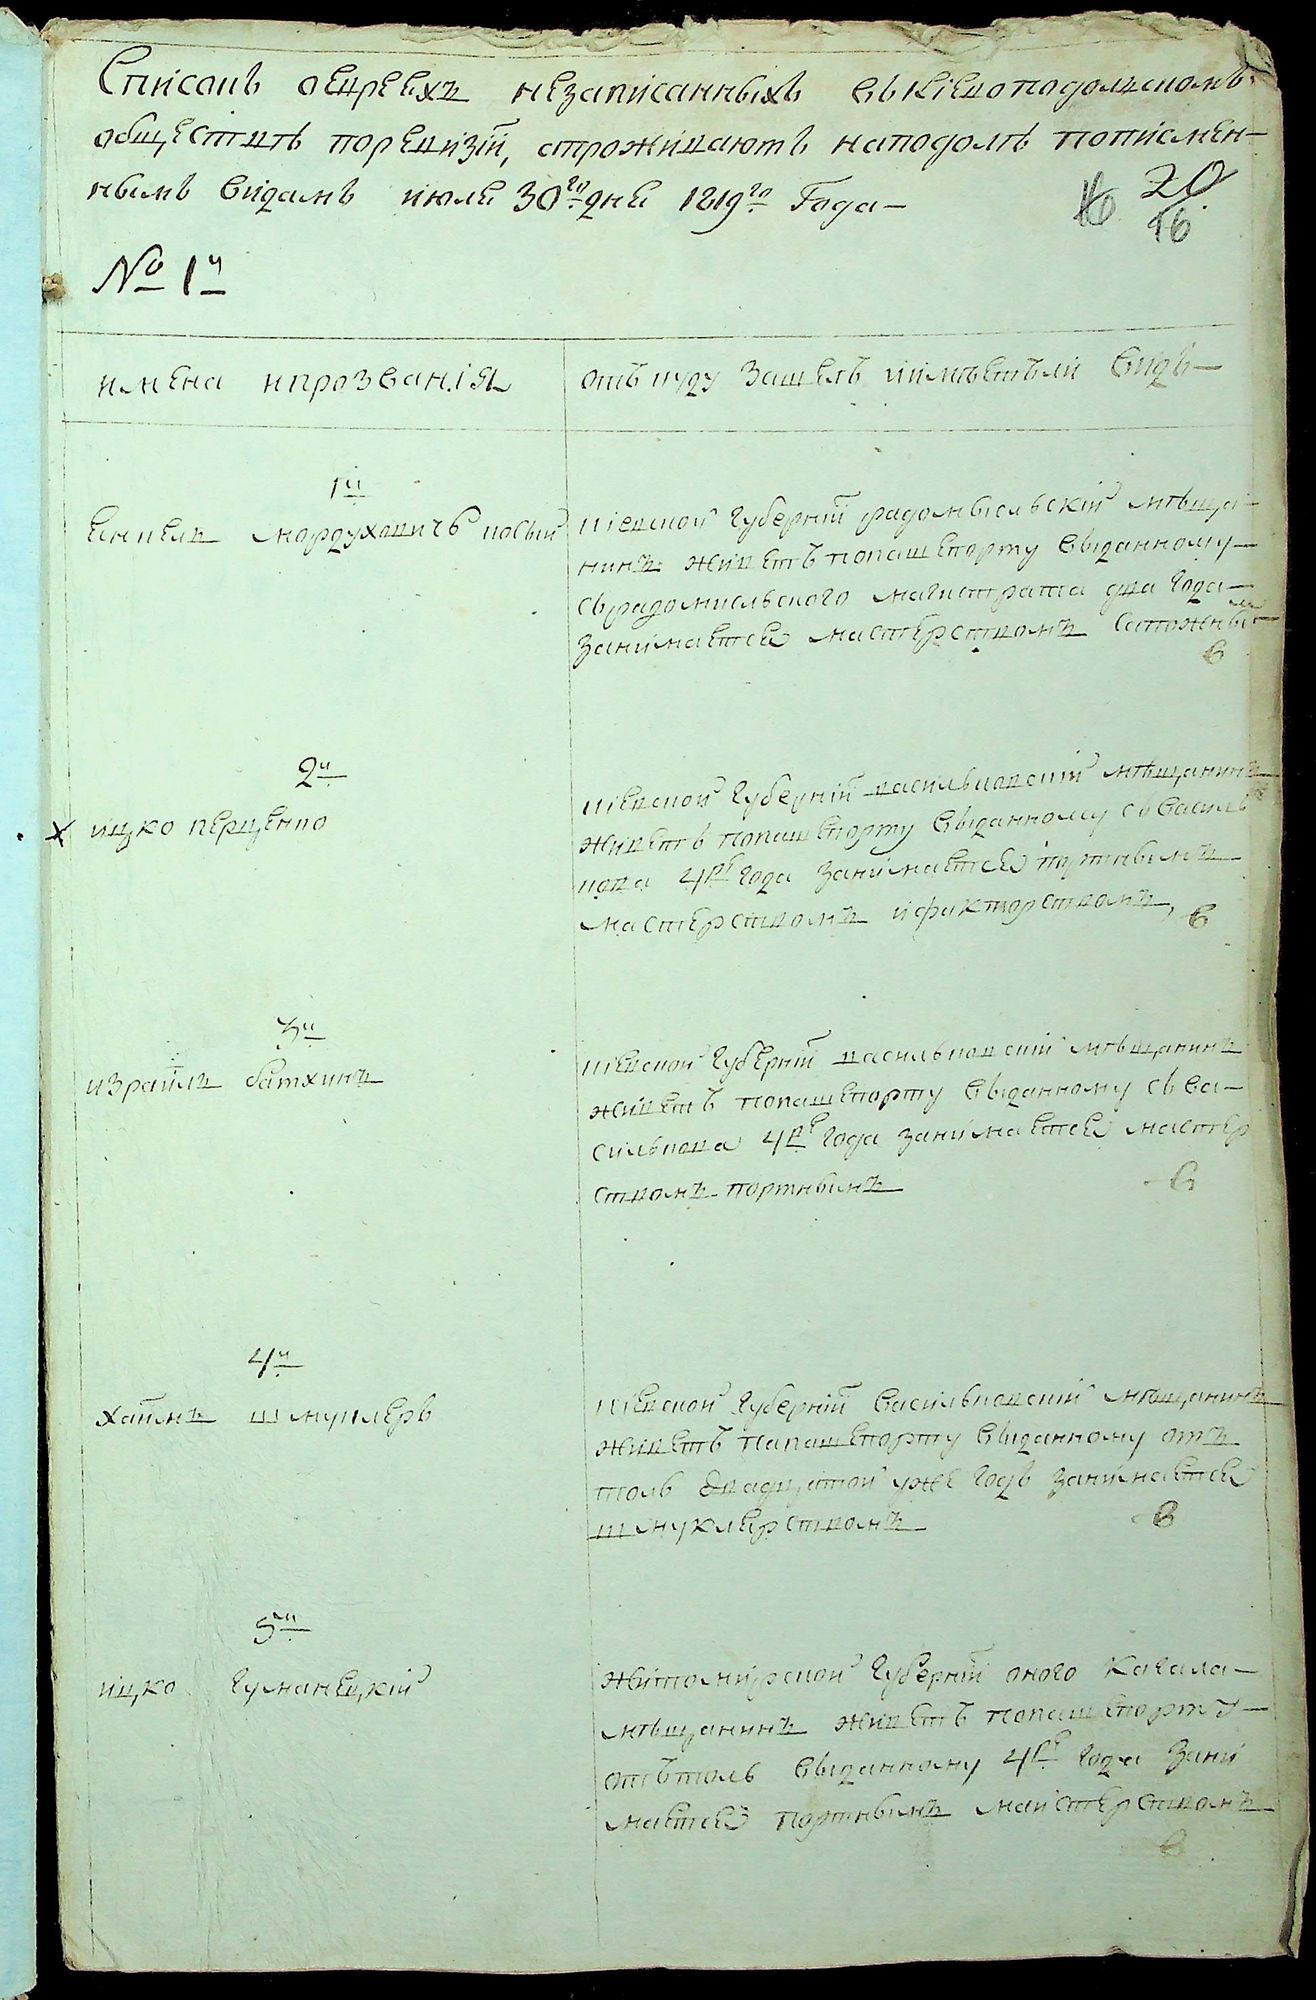 Списокъ оевреяхъ незаписанныхъ въкіевоподольскомъ
обществѣ поревизіи, апроживаютъ наподолѣ пописмен-
нымъ видамъ июля 30го дня 1819го Года-
16 20
16
№ 1й
имена ипрозванія
отъкуду зашелъ ииместъли видъ-
1й
мордуховичъ косый
кіевской губерніи радомысльскій мѣща-
нинъ живетъ попашепорту выданному-
сърадомисльского магистрата два года-
занимается мастерствомъ сапожнымъ
в
2й
х ицко перценко
кіевской губерніи васильковскій мѣщанинъ
живетъ попашепорту выданному съ Василь
кова 4ре года занимается портнымъ
мастерствомъ ифакторствомъ, в
3й
израиль батхинъ
кіевской губерніи васильковскій мѣщанинъ
живетъ попашепорту выданному съ Ва-
силькова 4ре года занимается мастер
ствомъ портнымъ в
4й
хаимъ шмуклеръ
кіевской губерніи васильковскій мѣщанинъ
живетъ попашепорту выданному отъ
толь двадцатой уже годъ занимается
шмуклерствомъ в
5й
ицко гуманецкій
житомирской губерніи оного кагала-
мѣщанинъ живетъ попашепорту-
отътоль выданному 4ре года зани
мается портнымъ майстерствомъ
в